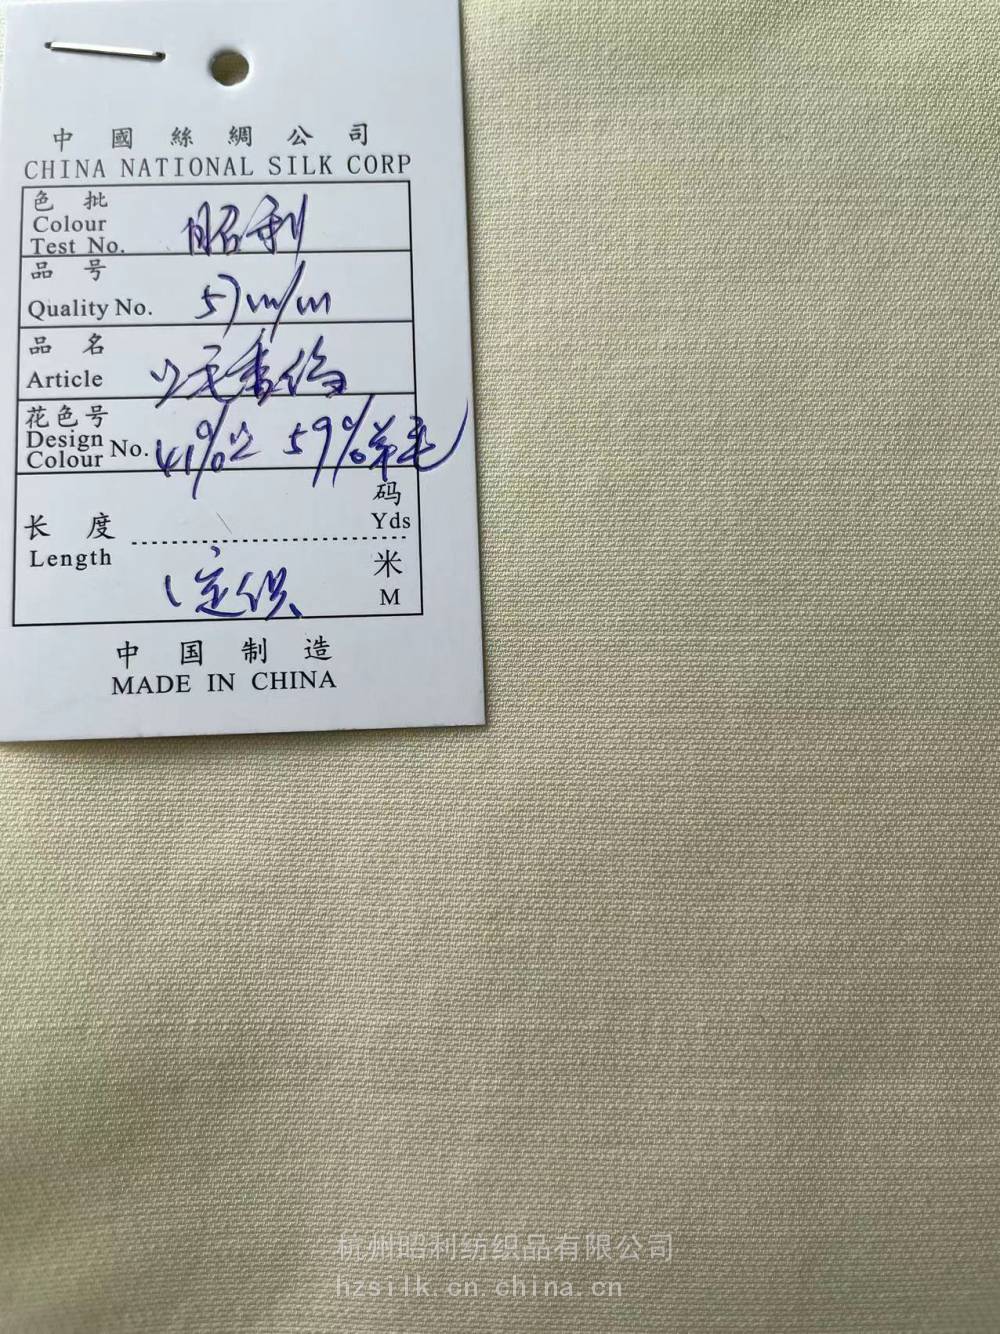 中國絲綢公司
CHINA NATIONAL SILK CORP
色批
Colour
Test No.
昭利
品号
Quality No.
57m/m
品名
Article
毛香
花色号
Design
Colour No.
41% 59%羊毛
码
Yds
长度
Length
米
M
定织
中国制造
MADE IN CHINA
杭州昭利纺织品有限公司
hzsilk.cn.china.cn